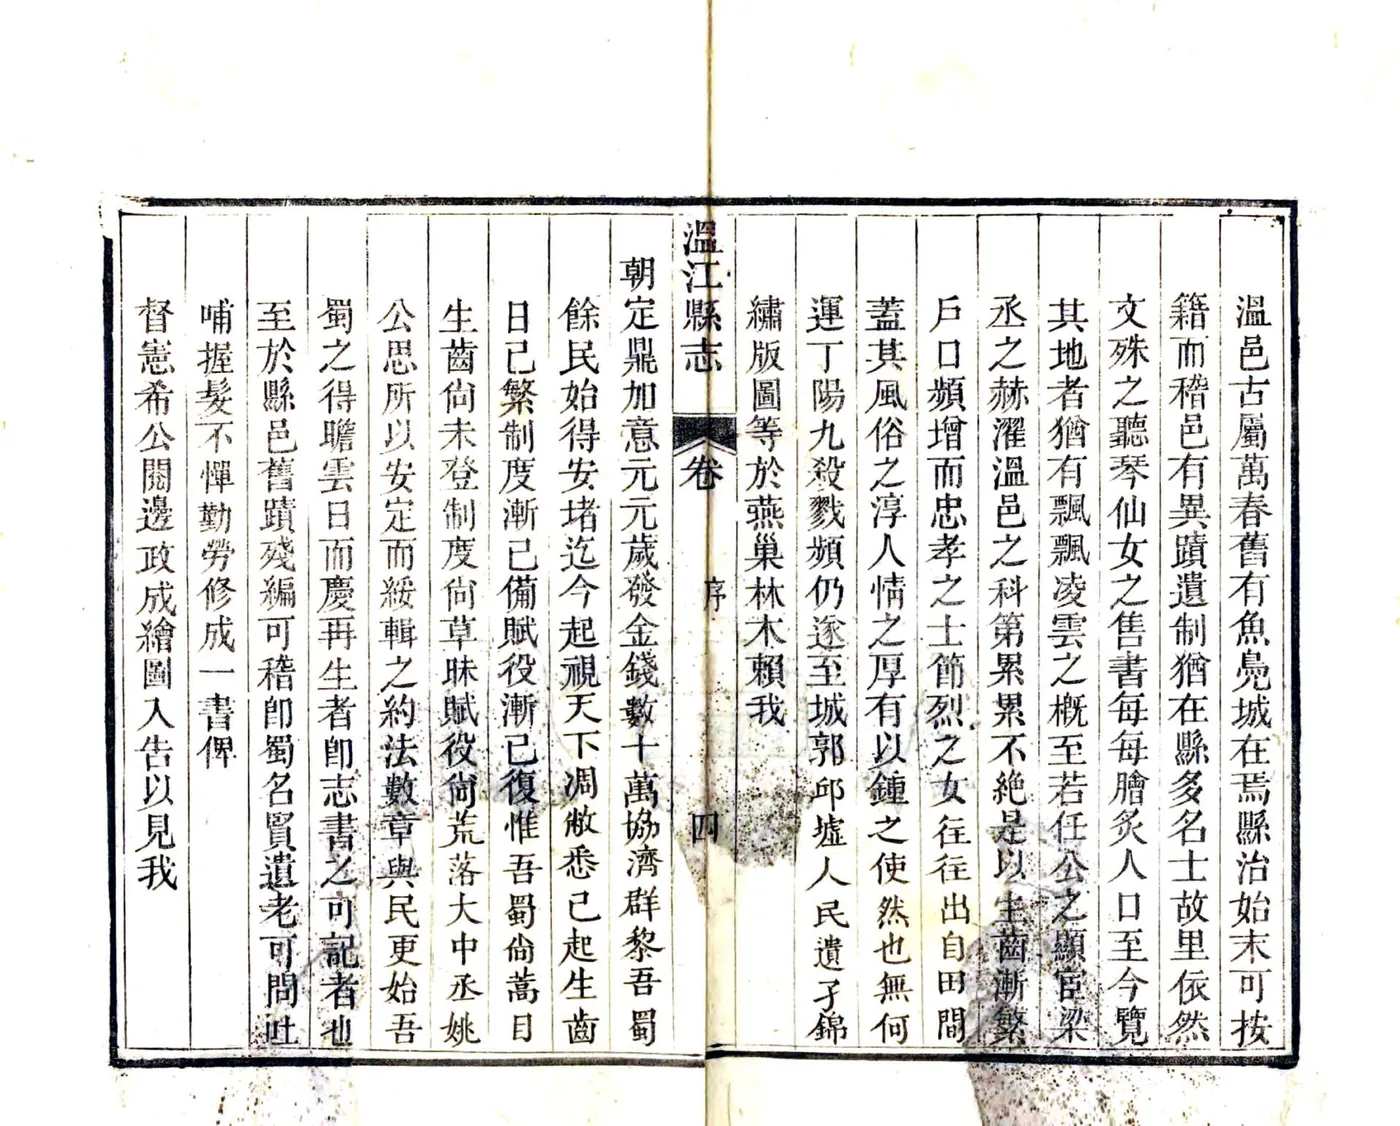 溫邑古屬萬春舊有魚鳧城在焉縣治始末可按
籍而稽邑有異蹟遺制猶在縣多名士故里依然
文殊之聽琴仙女之售書每每膾炙人口至今覽
其地者猶有飄飄凌雲之概至若任公之顯宦梁
丞之赫濯溫邑之科第累累不絕是以生齒漸繁
戶口頻增而忠孝之士節烈之女往往出自田間
蓋其風俗之淳人情之厚有以鍾之使然也無何
運丁陽九殺戮頻仍遂至城郭邱墟人民遺孑錦
繡版圖等於燕巢林木賴我
溫江縣志
卷
序
四
朝定鼎加意元元歲發金錢數十萬協濟群黎吾蜀
餘民始得安堵迄今起視天下凋敝悉已起生齒
日已繁制度漸已備賦役漸已復惟吾蜀尙蒿目
生齒尙未登制度尙草昧賦役尙荒落大中丞姚
公思所以安定而綏輯之約法數章與民更始吾
蜀之得瞻雲日而慶再生者卽志書之可記者也
至於縣邑舊蹟殘編可稽卽蜀名賢遺老可問吐
哺握髮不憚勤勞修成一書俾
督憲希公閱邊政成繪圖入告以見我